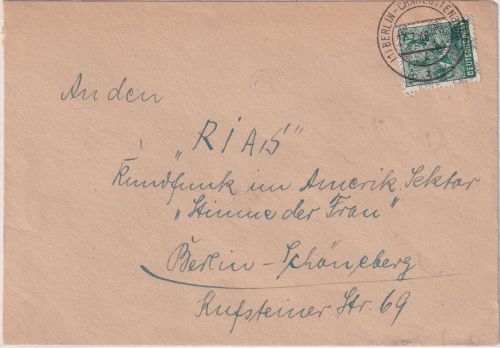 (1) BERLIN-CHARLOTTENB
DEUTSCHE POST
An den
„RIAS"
Rundfunk im Amerik. Sektor
„Stimme der Frau"
Berlin-Schöneberg
Kufsteiner Str. 69